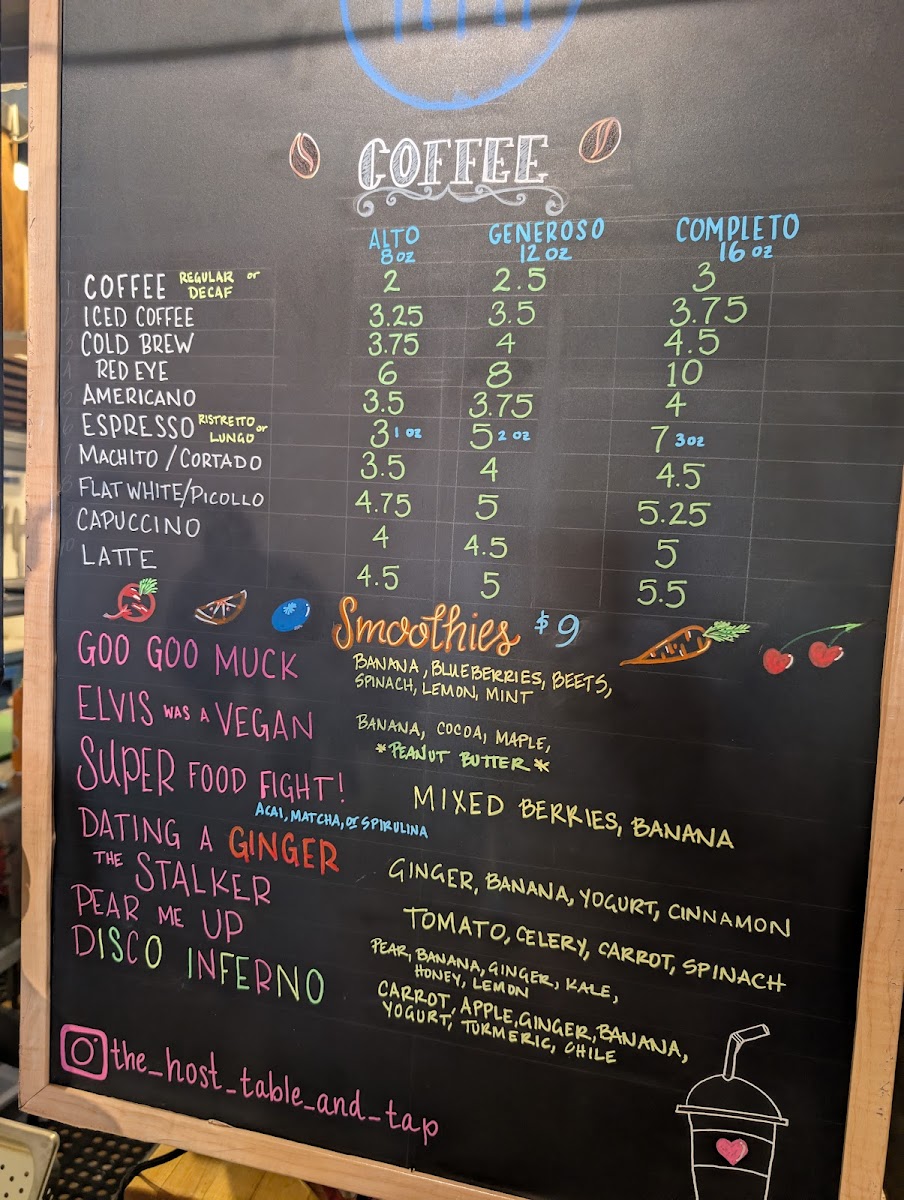 COFFEE
ALTO GENEROSO COMPLETO
8 oz 12 oz 16 oz
COFFEE REGULAR or DECAF 2 2.5 3
ICED COFFEE 3.25 3.5 3.75
COLD BREW 3.75 4 4.5
RED EYE 6 8 10
AMERICANO 3.5 3.75 4
ESPRESSO RISTRETTO or LUNGO 3 1 oz 5 2 oz 7 3 oz
MACHITO / CORTADO 3.5 4 4.5
FLAT WHITE/PICOLLO 4.75 5 5.25
CAPUCCINO 4 4.5 5
LATTE 4.5 5 5.5
Smoothies $9
GOO GOO MUCK BANANA, BLUEBERRIES, BEETS,
SPINACH, LEMON, MINT
ELVIS WAS A VEGAN BANANA, COCOA, MAPLE,
*PEANUT BUTTER*
SUPER FOOD FIGHT! MIXED BERRIES, BANANA
ACAI, MATCHA, or SPIRULINA
DATING A GINGER GINGER, BANANA, YOGURT, CINNAMON
THE STALKER TOMATO, CELERY, CARROT, SPINACH
PEAR ME UP PEAR, BANANA, GINGER, KALE,
HONEY, LEMON
DISCO INFERNO CARROT, APPLE, GINGER, BANANA,
YOGURT, TURMERIC, CHILE
the_host_table_and_tap